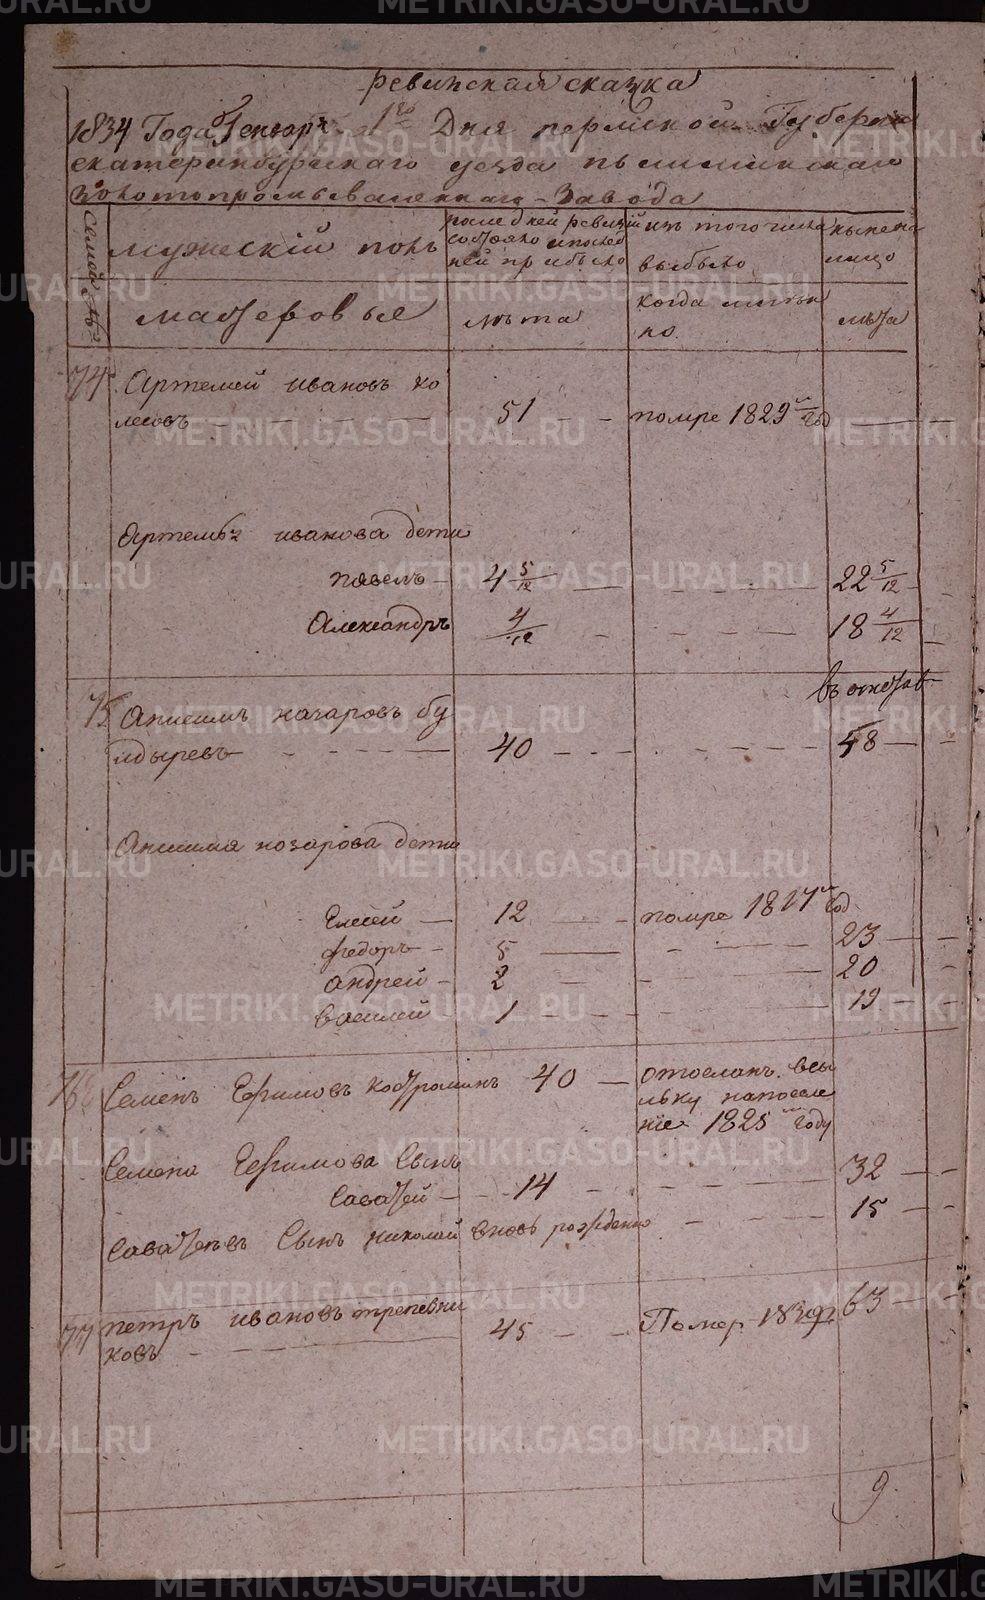 ревизская сказка
1834 Года Генваря 1го Дня пермской Губернии
екатеринбургскаго уезда пышминскаго
золотопромываленнаго завода
Семей №
мужескій полъ
последней ревизій состояло и после ней прибыло
изъ того числа выбыло
ныне на лицо
мастеровыя
лѣта
когда имянно
лѣта
74 Артемей ивановъ ко
лесовъ 51 помре 1829го год
Артемья иванова дети
павелъ 4 5/12 22 5/12
Александръ 4/12 18 4/12
въ отстав
75 Анисимъ назаровъ бу
лдыревъ 40 58
Анисима назарова дети
Елисей 12 помре 1817го год
федоръ 5 23
андрей 2 20
василей 1 19
76 Семенъ Ефимовъ костроминъ 40 отосланъ в ссы
лку на поселе
ніе 1825го году
Семена Ефимова Сынъ
Саватей 14 32
Саватеевъ Сынъ николай вновь рожденно 15
77 петръ ивановъ трепезни
ковъ 45 Помер 63
9.
METRIKI.GASO-URAL.RU